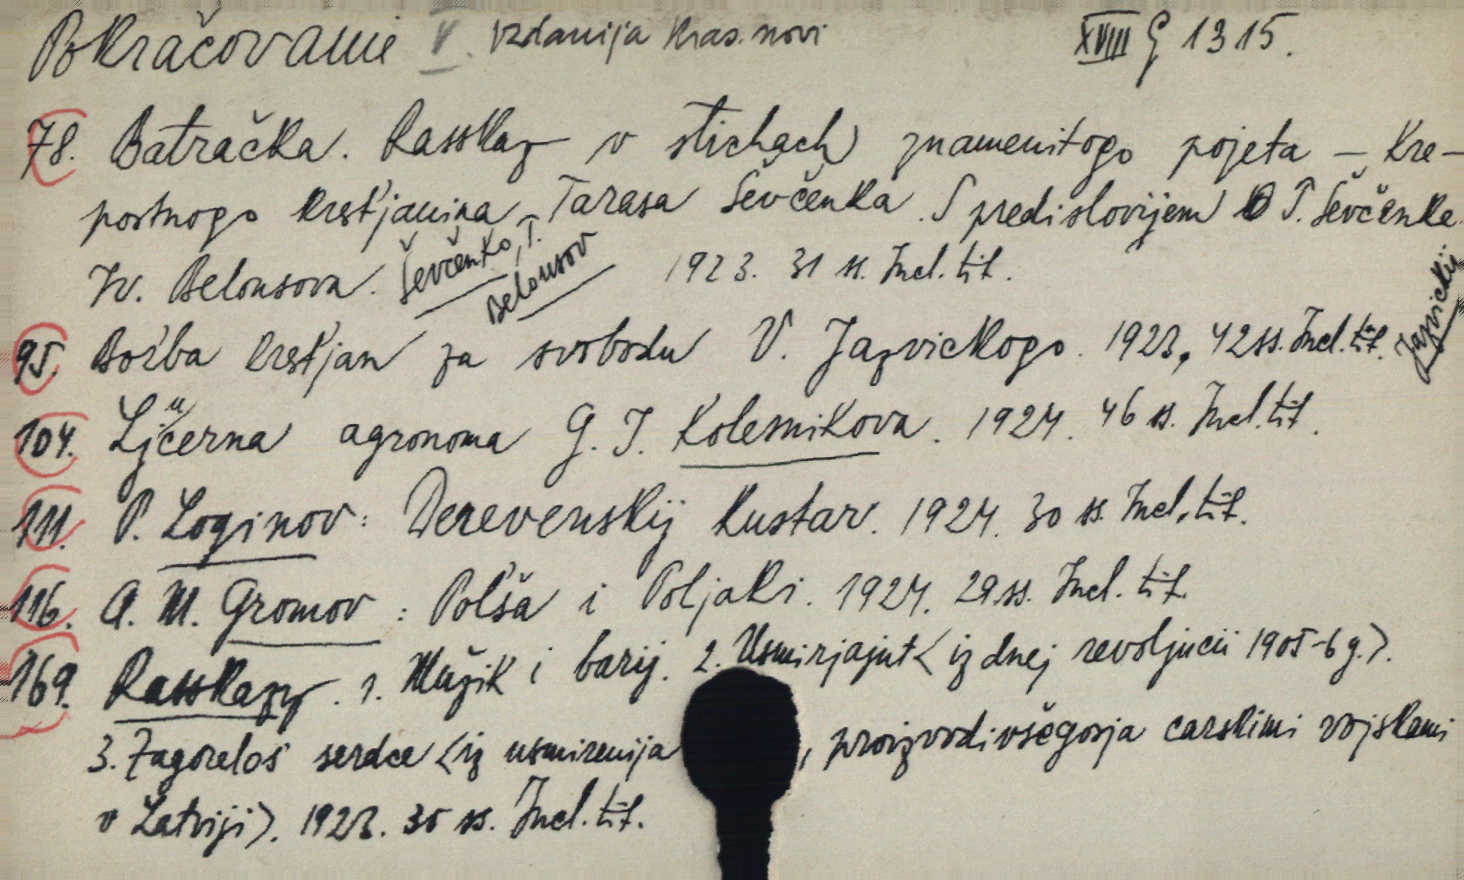 Pokračovanie V. Izdanija Kras. novi XVIII G 1315.
78. Batračka. Rasskaz v stichach znamenitogo pojeta – Kre-
postnogo krestjanina Tarasa Ševčenka. S predislovijem O T. Ševčenke
Iv. Belousova. Ševčenko, T. Belousov 1923. 31 ss. Incl. tit.
95. Boŕba krestjan za svobodu V. Jazvickogo. 1923, 42 ss. Incl. tit. Jazvickij
104. Ljucerna agronoma G. I. Kolesnikova. 1924. 46 ss. Incl. tit.
111. P. Loginov: Derevenskij kustar. 1924. 30 ss. Incl. tit.
116. A. M. Gromov: Poľša i Poljaki. 1924. 29 ss. Incl. tit.
169. Rasskazy. 1. Mužik i barij. 2. Usmirjajut <iz dnej revoljucii 1905-6 g.>.
3. Zagoreloś serdce <iz usmirenija , proizvodivšegosja carskimi vojskami
v Latviji>. 1923. 35 ss. Incl. tit.